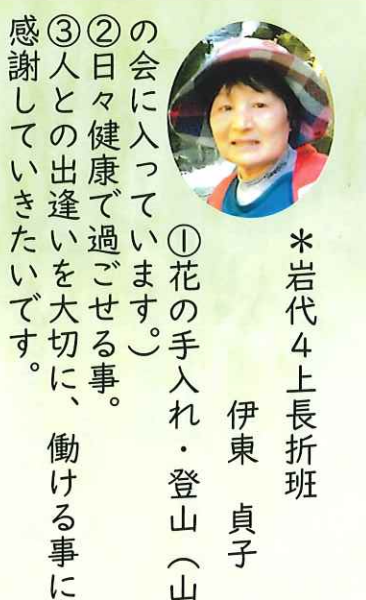 ＊岩代４上長折班
伊東　貞子
①花の手入れ・登山（山
の会に入っています。）
②日々健康で過ごせる事。
③人との出逢いを大切に、働ける事に
感謝していきたいです。